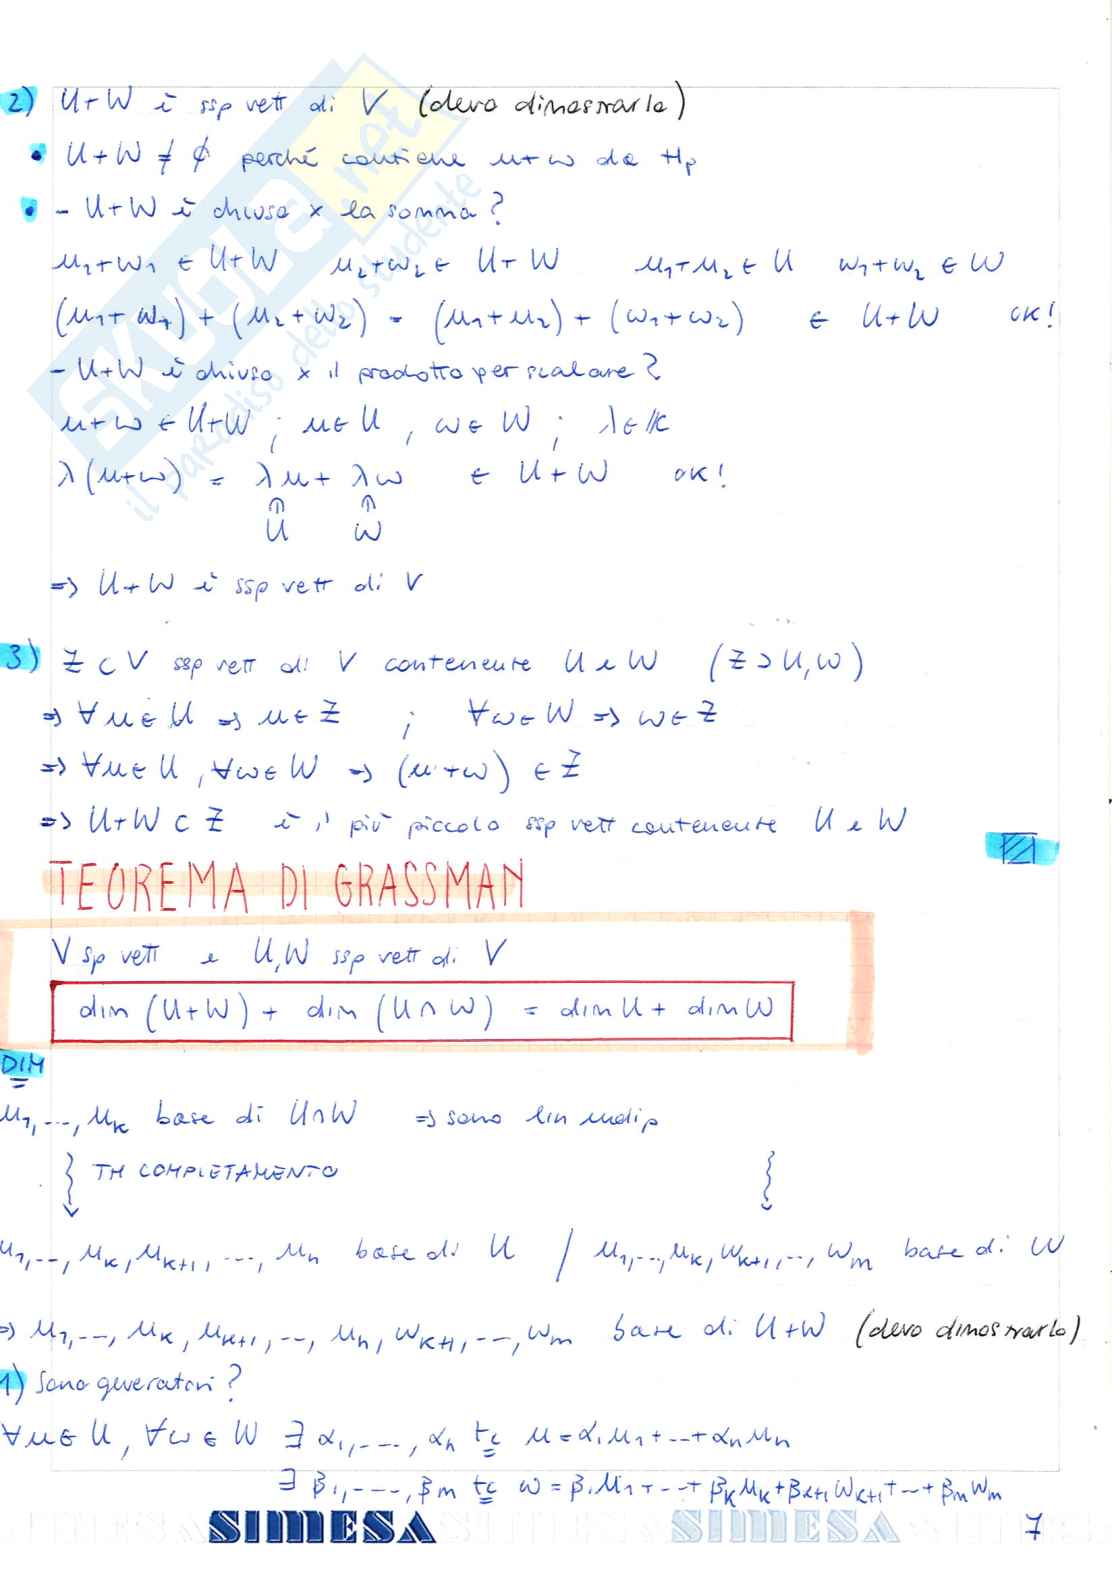 2) U+W è ssp vett di V (devo dimostrarlo)
• U+W ≠ ∅ perché contiene u+w da Hp
• - U+W è chiuso x la somma?
u₁+w₁ ∈ U+W u₂+w₂ ∈ U+W u₁+u₂ ∈ U w₁+w₂ ∈ W
(u₁+w₁) + (u₂+w₂) = (u₁+u₂) + (w₁+w₂) ∈ U+W OK!
- U+W è chiuso x il prodotto per scalare?
u+w ∈ U+W ; u∈U , w∈W ; λ∈K
λ(u+w) = λu + λw ∈ U+W OK!
⋒ ⋒
U W
=> U+W è ssp vett di V
3) Z ⊂ V ssp vett di V contenente U e W (Z ⊃ U,W)
=> ∀u∈U => u∈Z ; ∀w∈W => w∈Z
=> ∀u∈U, ∀w∈W => (u+w) ∈ Z
=> U+W ⊂ Z è il più piccolo ssp vett contenente U e W
TEOREMA DI GRASSMAN
V sp vett e U,W ssp vett di V
dim (U+W) + dim (U∩W) = dim U + dim W
DIM
u₁,---, uₖ base di U∩W => sono lin indip
TH COMPLETAMENTO
u₁,--, uₖ, uₖ₊₁, ---, uₙ base di U / u₁,--,uₖ,wₖ₊₁,--, wₘ base di W
=> u₁,--, uₖ, uₖ₊₁, --, uₙ, wₖ₊₁, --, wₘ base di U+W (devo dimostrarlo)
1) Sono generatori?
∀u∈U, ∀w∈W ∃ α₁,----, αₙ tc u=α₁u₁+--+αₙuₙ
∃ β₁,---, βₘ tc w=β₁u₁+--+βₖuₖ+βₖ₊₁wₖ₊₁+--+βₘwₘ
SIMESA SIMESA 7
SKUOLA.net
il paradiso dello studente